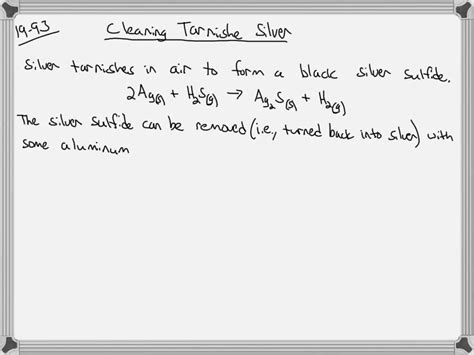 19-93 Cleaning Tarnishe Silver
Silver tarnishes in air to form a black silver sulfide.
2Ag(s) + H₂S(g) → Ag₂S(s) + H₂(g)
The silver sulfide can be removed (i.e., turned back into silver) with
some aluminum